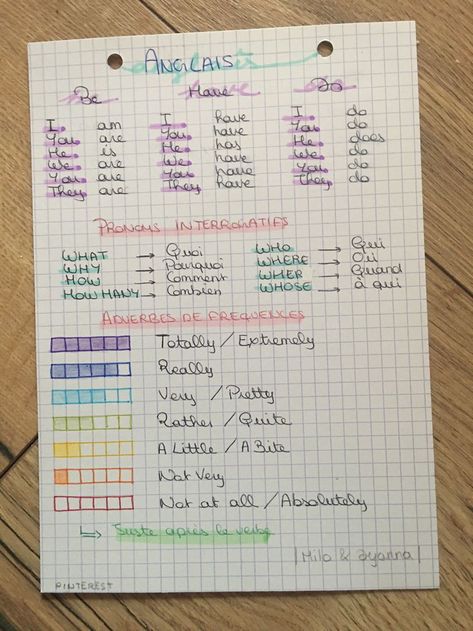 ANGLAIS
Be Have Do
I am I have I do
You are You have You do
He is He has He does
We are We have We do
You are You have You do
They are They have They do
PRONOMS INTERROGATIFS
WHAT → Quoi WHO → Qui
WHY → Pourquoi WHERE → Où
HOW → Comment WHER → Quand
HOW MANY → Combien WHOSE → à qui
ADVERBES DE FREQUENCES
Totally / Extremely
Really
Very / Pretty
Rather / Quite
A Little / A Bite
Not Very
Not at all / Absolutely
↳ Juste après le verbe
|Milo & Ayanna
PINTEREST